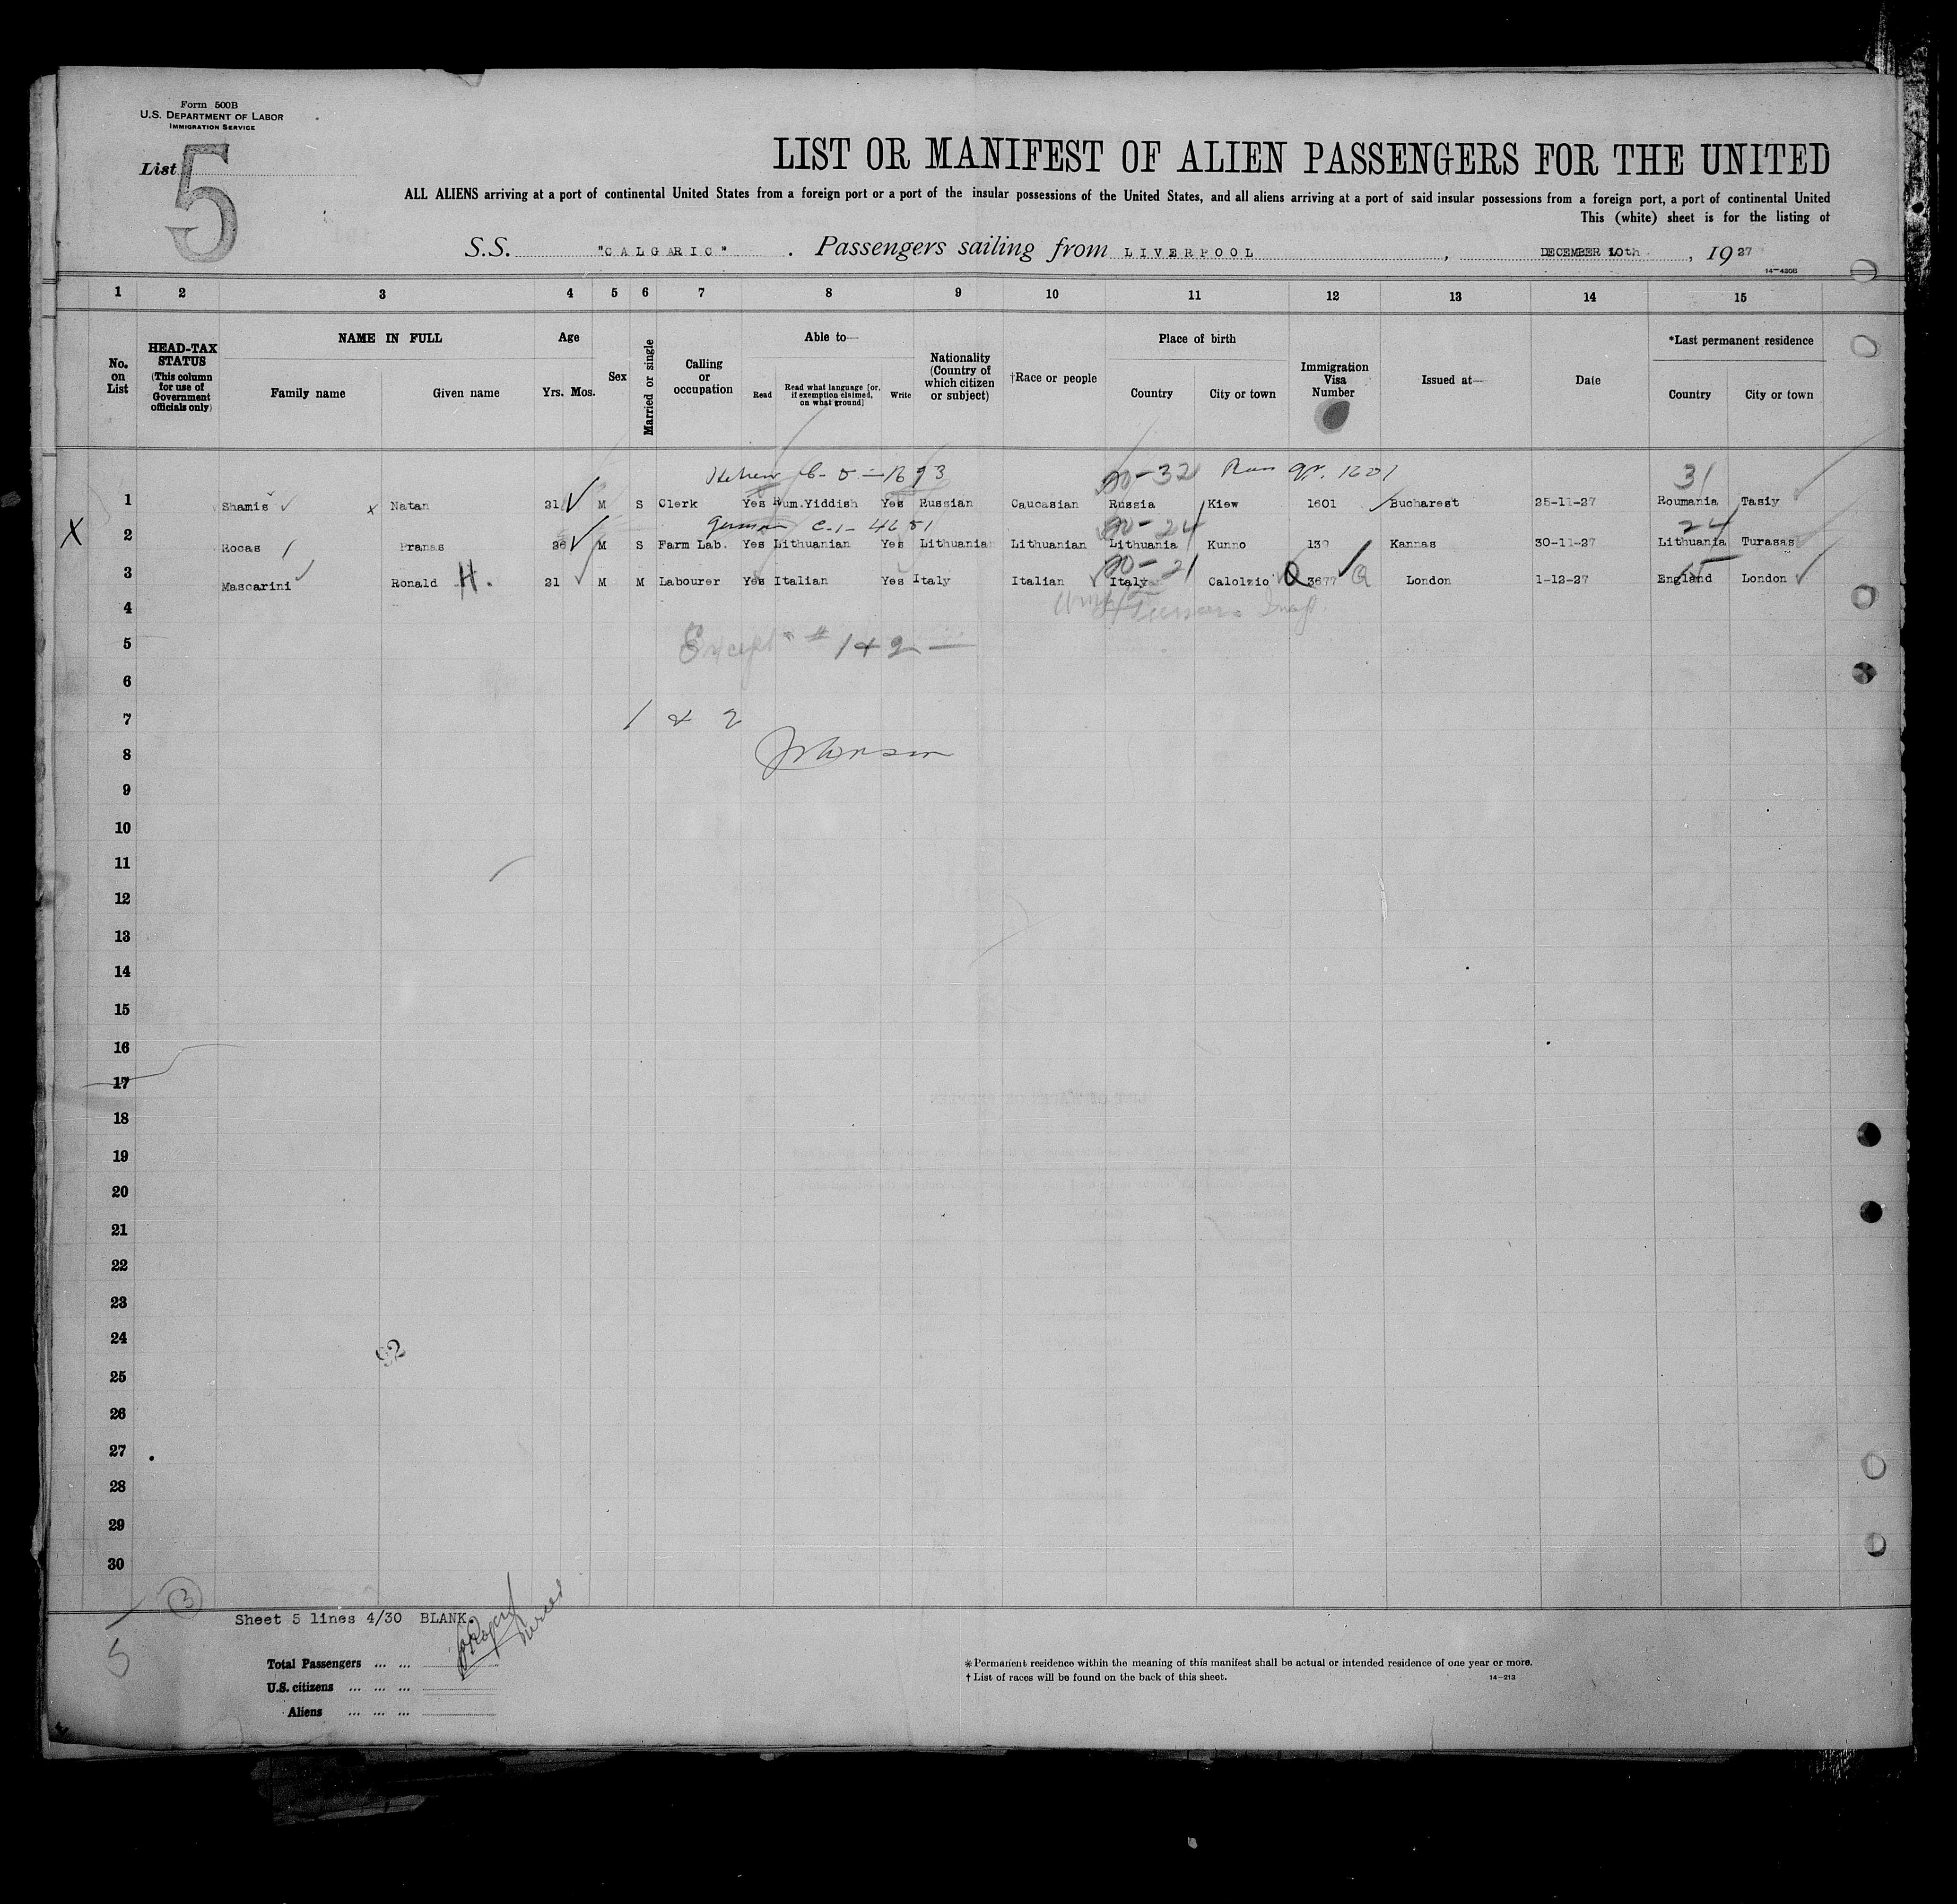 Form 500B
U.S. DEPARTMENT OF LABOR
IMMIGRATION SERVICE
List 5
LIST OR MANIFEST OF ALIEN PASSENGERS FOR THE UNITED
ALL ALIENS arriving at a port of continental United States from a foreign port or a port of the insular possessions of the United States, and all aliens arriving at a port of said insular possessions from a foreign port, a port of continental United
This (white) sheet is for the listing of
S.S. "CALGARIC". Passengers sailing from LIVERPOOL, DECEMBER 10th, 1927
14-4206
1 2 3 4 5 6 7 8 9 10 11 12 13 14 15
No. on List
HEAD-TAX STATUS (This column for use of Government officials only)
NAME IN FULL
Family name Given name
Age
Yrs. Mos.
Sex
Married or single
Calling or occupation
Able to—
Read
Read what language [or, if exemption claimed, on what ground]
Write
Nationality (Country of which citizen or subject)
†Race or people
Place of birth
Country City or town
Immigration Visa Number
Issued at—
Date
*Last permanent residence
Country City or town
Hebrew 20-32 31
1 Shamis x Natan 21 M S Clerk Yes Rum.Yiddish Yes Russian Caucasian Russia Kiew 1601 Bucharest 25-11-27 Roumania Tasiy
German 20-24 24
X 2 Rocas Pranas 26 M S Farm Lab. Yes Lithuanian Yes Lithuania Lithuanian Lithuania Kunno 139 Kannas 30-11-27 Lithuania Turasas
20-21 5
3 Mascarini Ronald H. 21 M M Labourer Yes Italian Yes Italy Italian Italy Calolzio Q 3677 Q London 1-12-27 England London
4
5 Except # 1 & 2 —
6
7 1 & 2
8 Johnson
9
10
11
12
13
14
15
16
17
18
19
20
21
22
23
24
25
26
27
28
29
30
3
Sheet 5 lines 4/30 BLANK.
5
Total Passengers ... ...
U.S. citizens ... ... ...
Aliens ... ... ...
*Permanent residence within the meaning of this manifest shall be actual or intended residence of one year or more.
†List of races will be found on the back of this sheet. 14-213